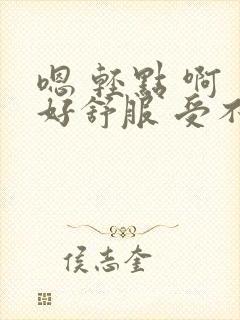 嗯 輕點 啊
好舒服 受不
侯志奎